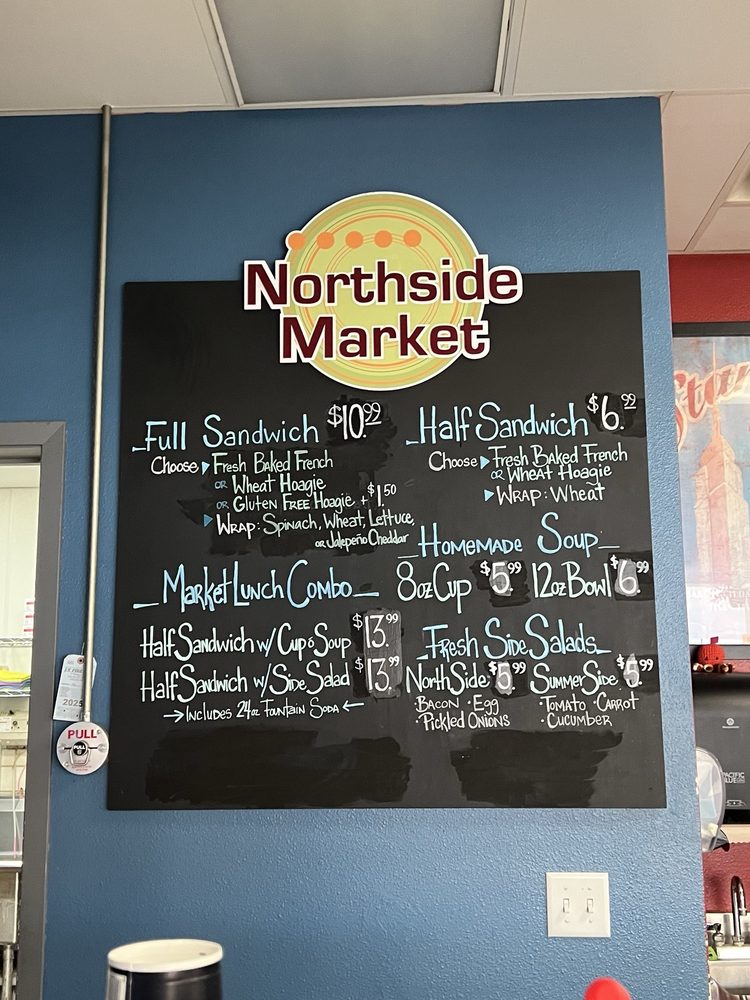 Northside
Market
Full Sandwich $10.99
Choose ▸ Fresh Baked French
or Wheat Hoagie
or Gluten Free Hoagie + $1.50
▸ Wrap: Spinach, Wheat, Lettuce,
or Jalepeño Cheddar
Market Lunch Combo
Half Sandwich w/ Cup o Soup $13.99
Half Sandwich w/ Side Salad $13.99
→ Includes 24oz Fountain Soda ←
Half Sandwich $6.99
Choose ▸ Fresh Baked French
or Wheat Hoagie
▸ Wrap: Wheat
Homemade Soup
8oz Cup $5.99 12oz Bowl $6.99
Fresh Side Salads
NorthSide $5.99 SummerSide $5.99
· Bacon · Egg · Tomato · Carrot
· Pickled Onions · Cucumber
PULL
PULL
2025
Star